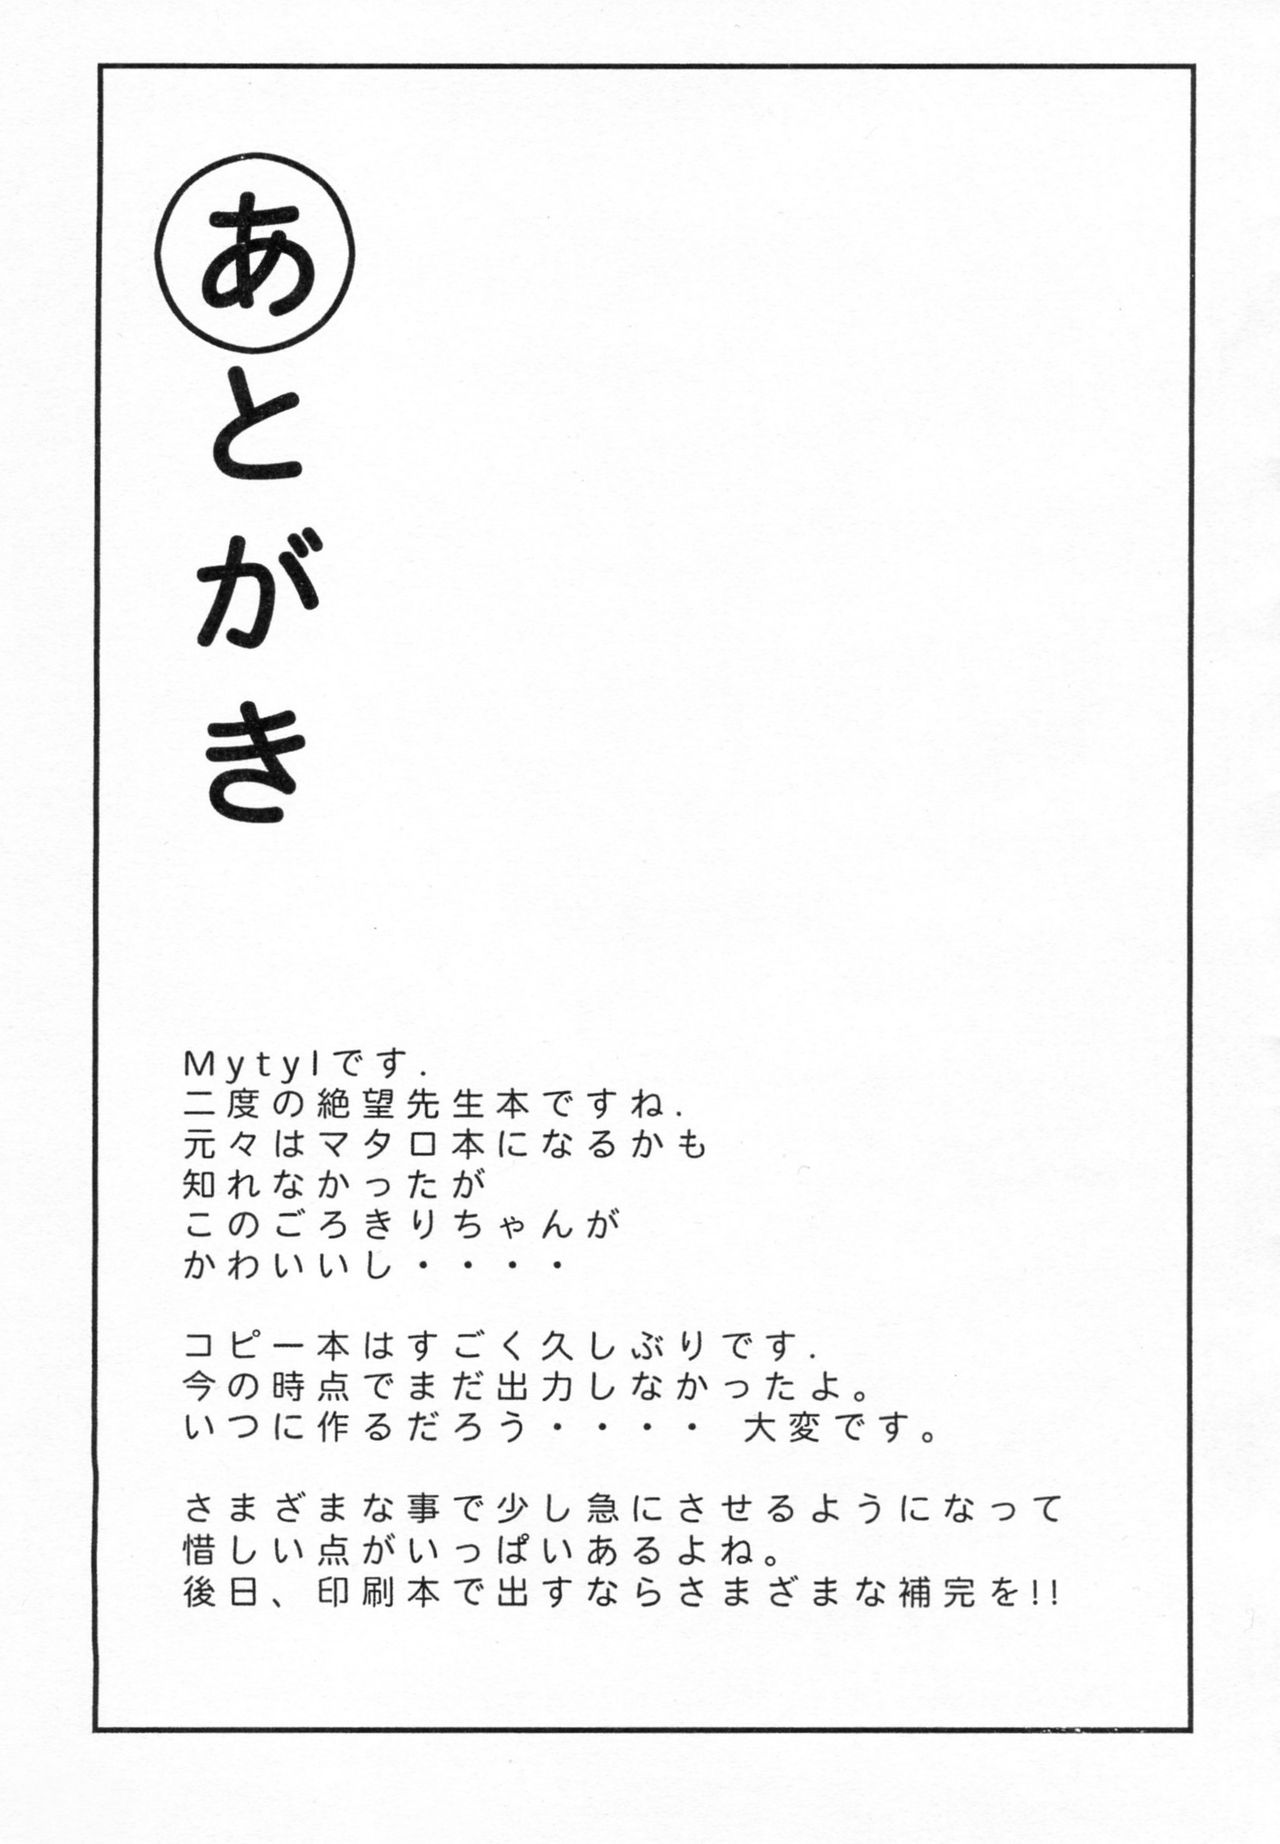 あとがき
Mytylです.
二度の絶望先生本ですね.
元々はマタロ本になるかも
知れなかったが
このごろきりちゃんが
かわいいし・・・・
コピー本はすごく久しぶりです.
今の時点でまだ出力しなかったよ。
いつに作るだろう・・・・ 大変です。
さまざまな事で少し急にさせるようになって
惜しい点がいっぱいあるよね。
後日、印刷本で出すならさまざまな補完を!!